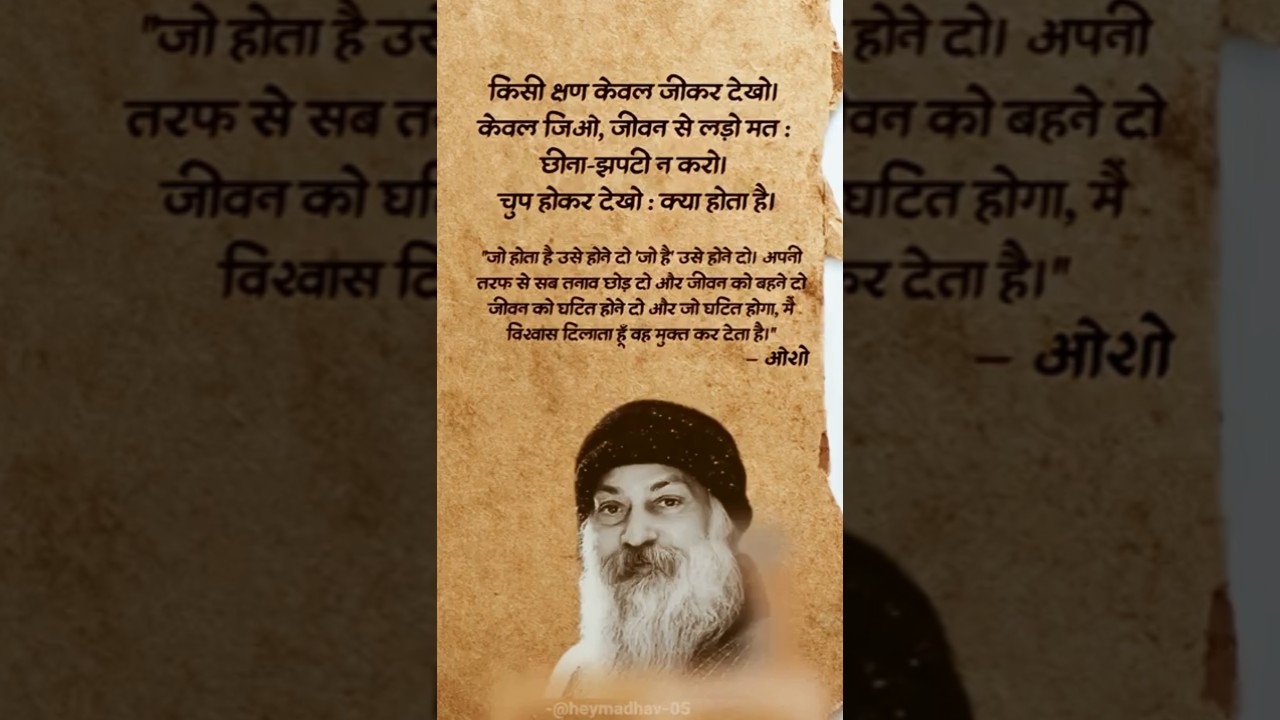 किसी क्षण केवल जीकर देखो।
केवल जिओ, जीवन से लड़ो मत :
छीना-झपटी न करो।
चुप होकर देखो : क्या होता है।
"जो होता है उसे होने दो 'जो है' उसे होने दो। अपनी
तरफ से सब तनाव छोड़ दो और जीवन को बहने दो
जीवन को घटित होने दो और जो घटित होगा, मैं
विश्वास दिलाता हूँ वह मुक्त कर देता है।"
– ओशो
-@heymadhav-05